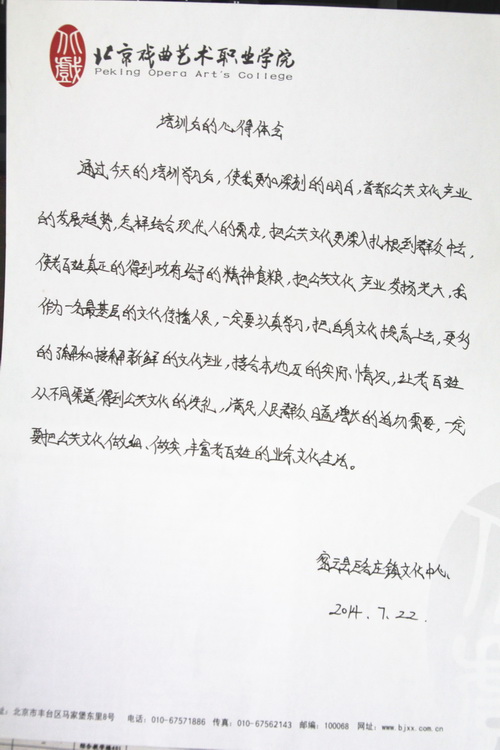 北京戏曲艺术职业学院
Peking Opera Art's College
培训后的心得体会
通过今天的培训学习后，使我更加深刻的明白，首都公共文化产业
的发展趋势，怎样结合现代人的需求，把公共文化更深入扎根到群众中去，
使老百姓真正的得到政府给予的精神食粮，把公共文化产业发扬光大，我
作为一名最基层的文化传播人员，一定要认真学习，把自身文化提高上去，更多
的了解和接触新鲜的文化产业，接合本地区的实际情况，让老百姓
从不同渠道得到公共文化的洗礼，满足人民群众日益增长的迫切需要，一定
要把公共文化做细、做实，丰富老百姓的业余文化生活。
密云县巨各庄镇文化中心
2014.7.22
址：北京市丰台区马家堡东里8号 电话：010-67571886 传真：010-67562143 邮编：100068 网址：www.bjxx.com.cn